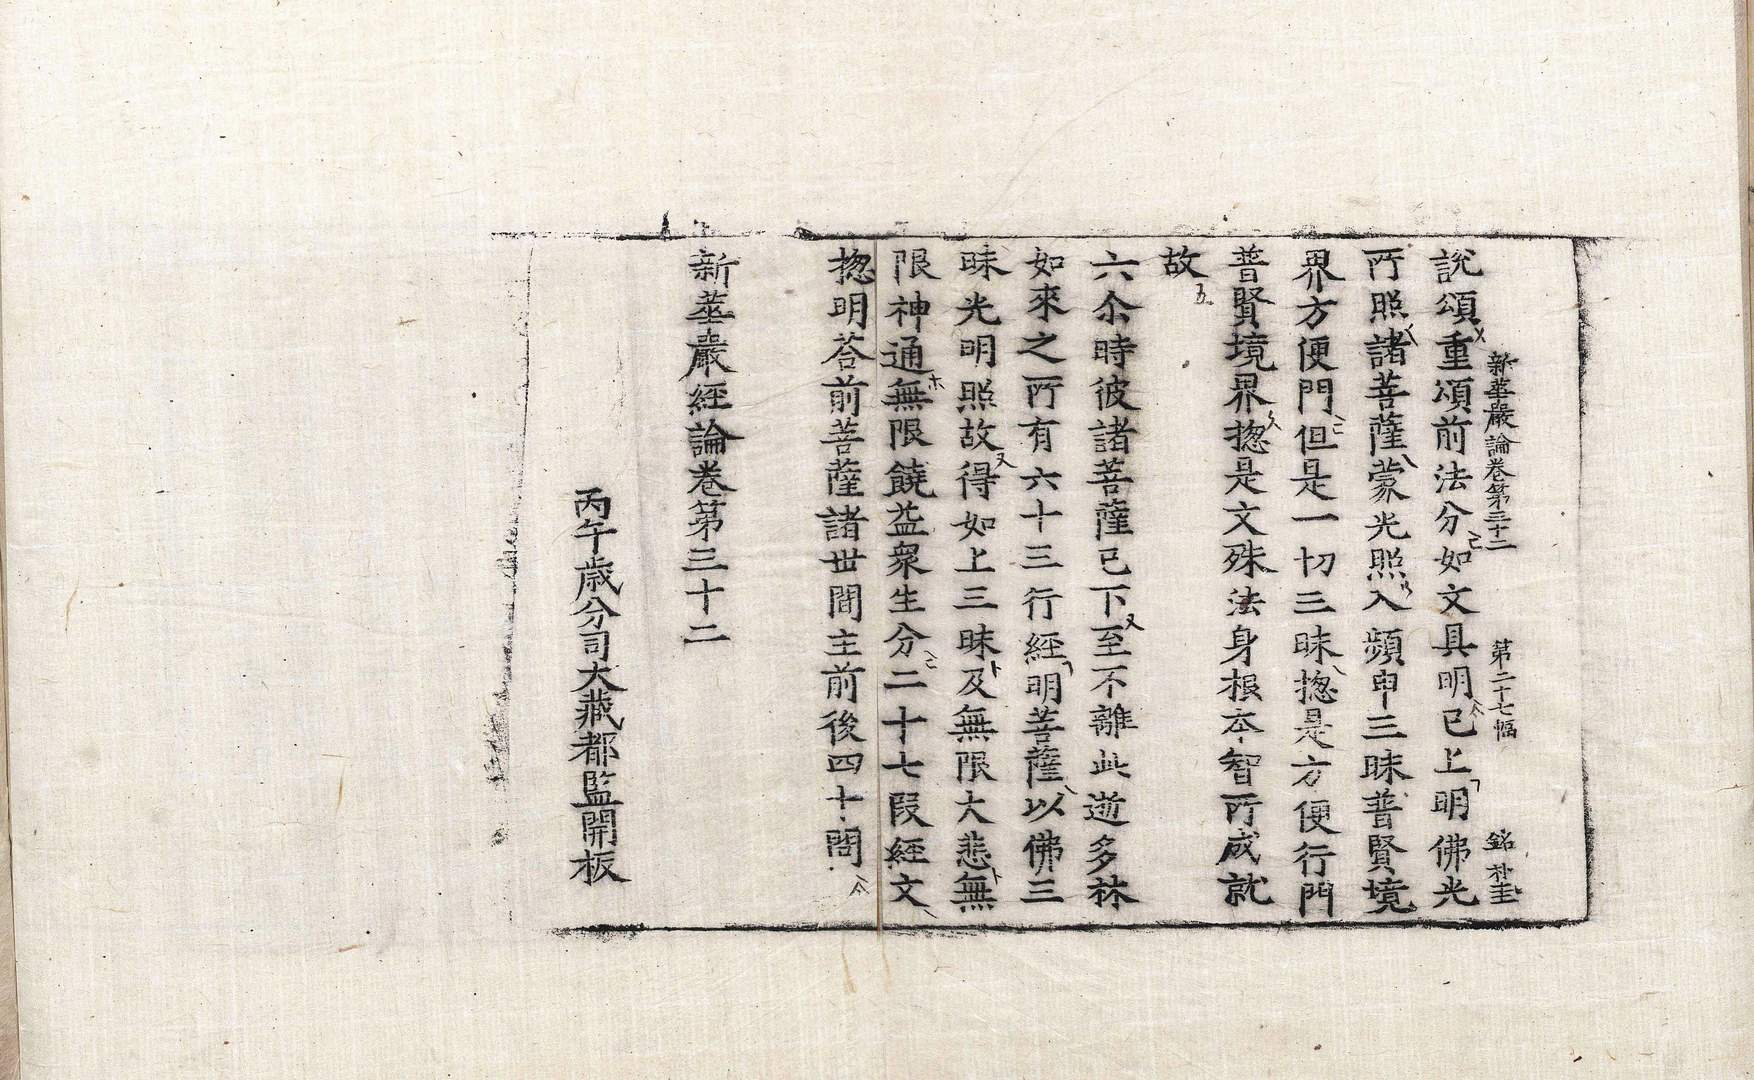 新華嚴論卷第三十二 第二十七幅 銘 朴圭
說頌重頌前法分如文具明已上明佛光
所照諸菩薩蒙光照入頻申三昧普賢境
界方便門但是一切三昧揔是方便行門
普賢境界揔是文殊法身根本智所成就
故
六尒時彼諸菩薩已下至不離此逝多林
如來之所有六十三行經明菩薩以佛三
昧光明照故得如上三昧及無限大悲無
限神通無限饒益衆生分二十七段經文
揔明荅前菩薩諸世間主前後四十問
新華嚴經論卷第三十二
丙午歲分司大藏都監開板